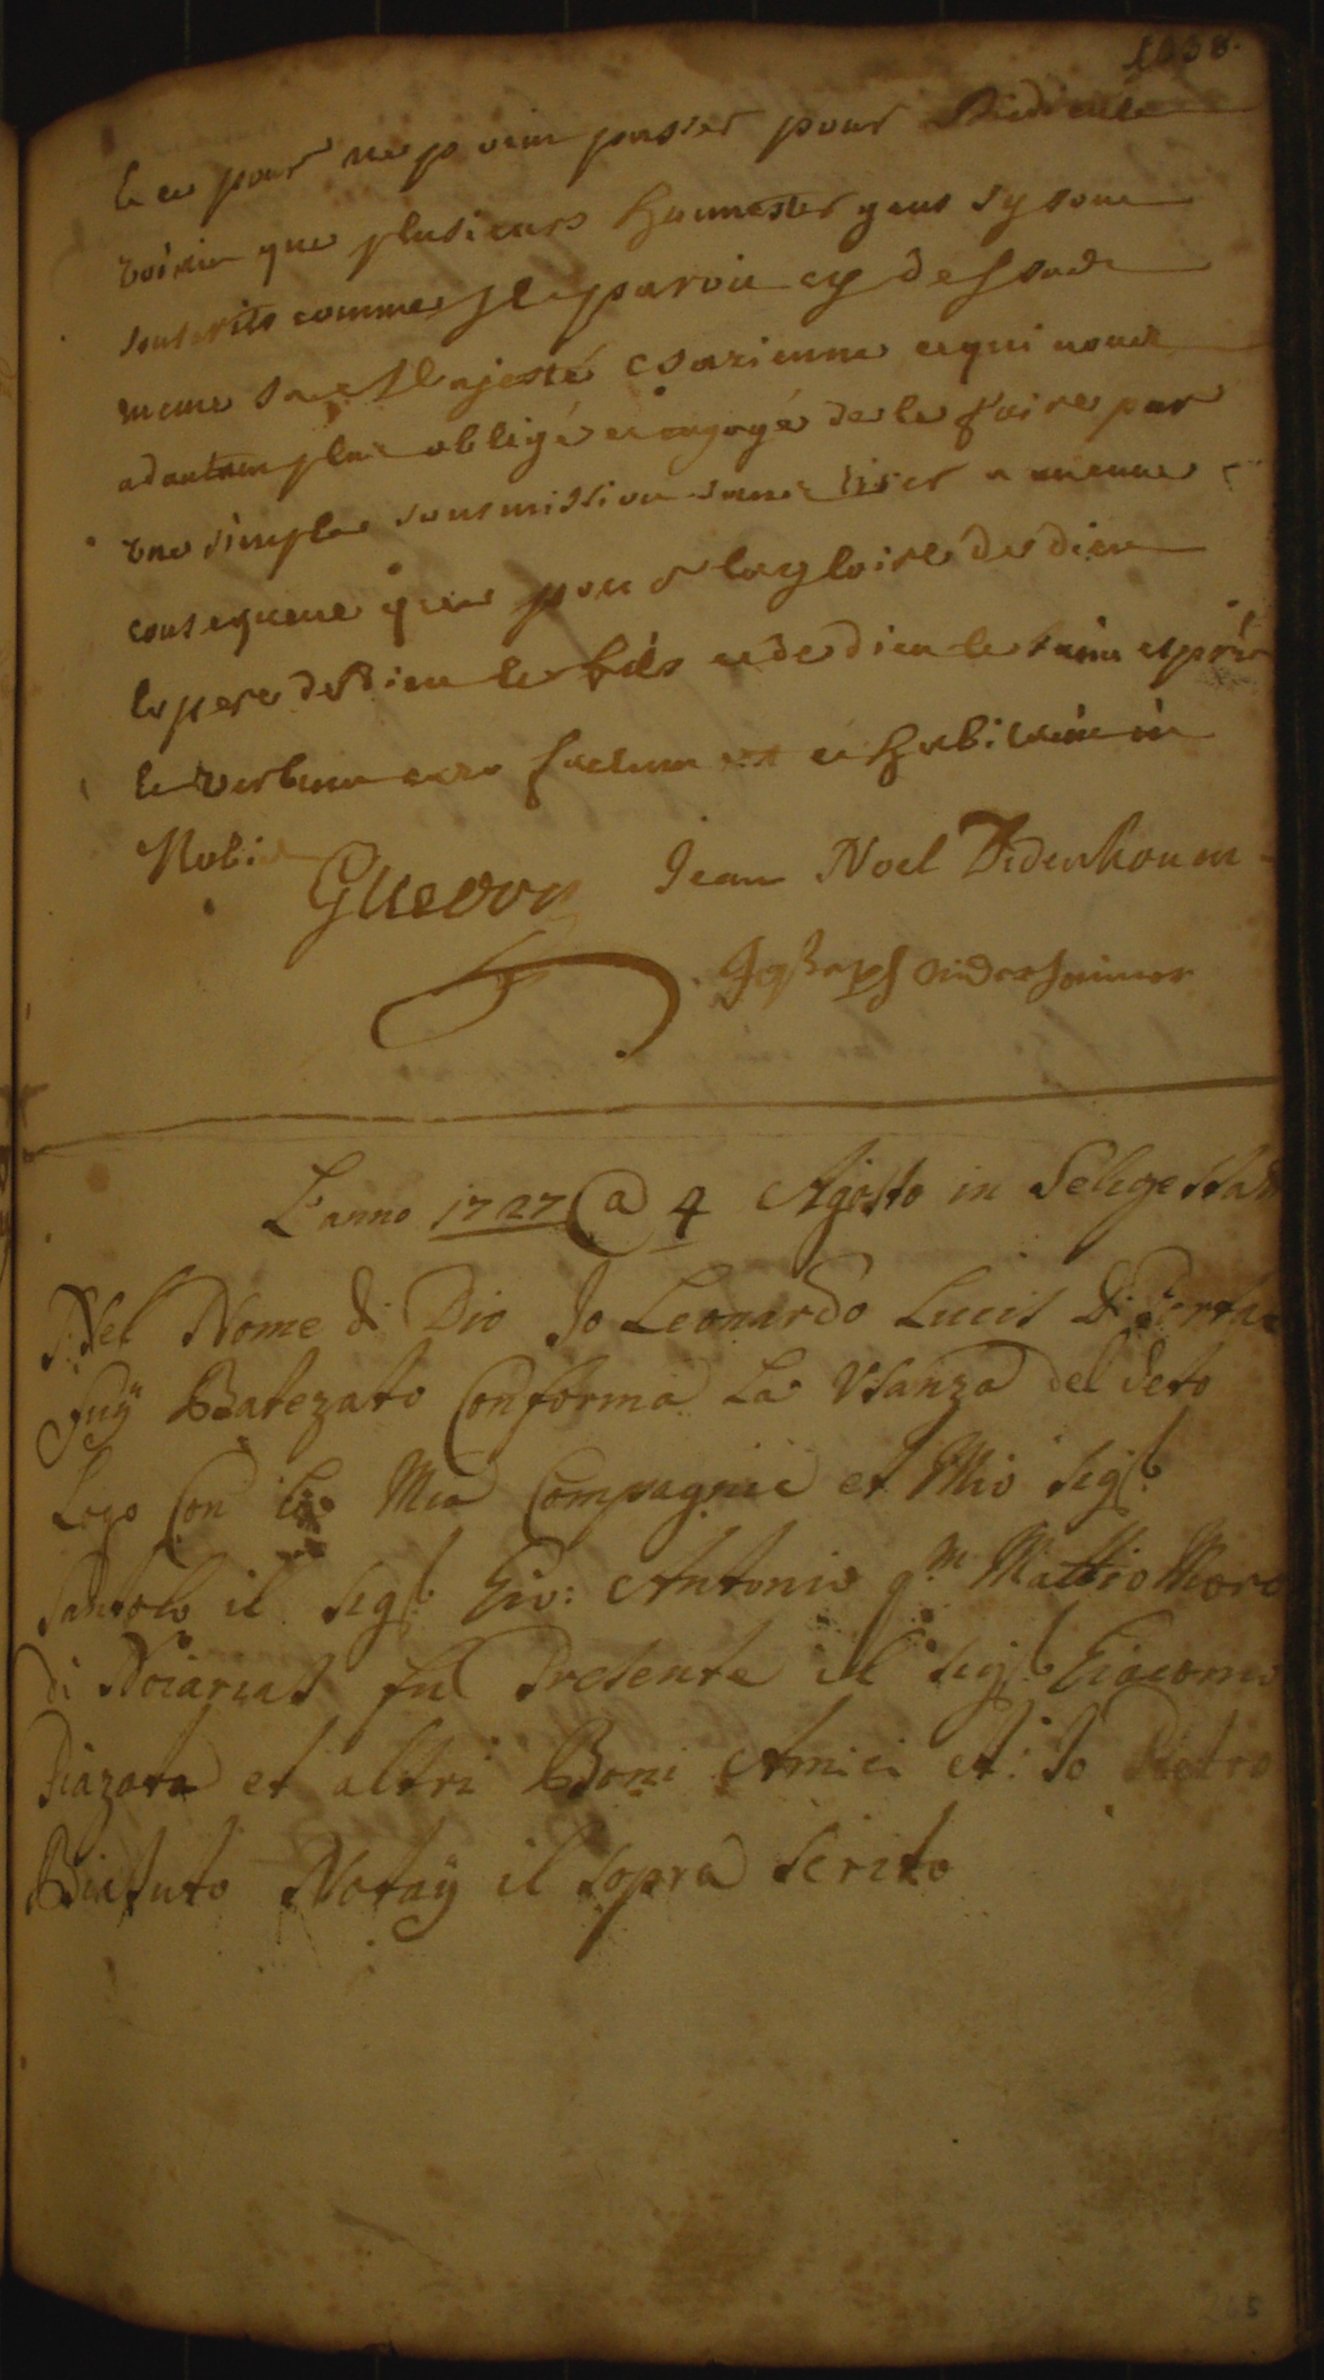 1038.
et ce pour ne point passer pour Ridicule
voisin que plusieurs honnestes gens sy sont
souscrits comme Il paroit cy dessus
meme sa Majesté Cesarienne ce qui nous
adautant plus obligé et engagé de le faire par
une simple soumission sans viser a aucune
consequence que pour la gloire de dieu
le pere de Dieu le fils et de dieu le saint esprit
et verbum caro factum est et habitavit in
Nobis
Guedon Jean Noel Didenhoum
Joseph niderheimer
L'anno 1727 @ 4 Agosto in Seligestat
Nel Nome di Dio Jo Leonardo Lucis Di
fuÿ Batezato Conforma La Usanza del deto
Logo Con Mia Compagnie et Mio Sigr
Santolo il Sigr Gio: Antonio qm Mattio Moro
di Noiarias fu Presente il Sigr Giacomo
Piazota et altri Boni Amici et: Jo Pietro
Biatuto Notaÿ il sopra Scrito